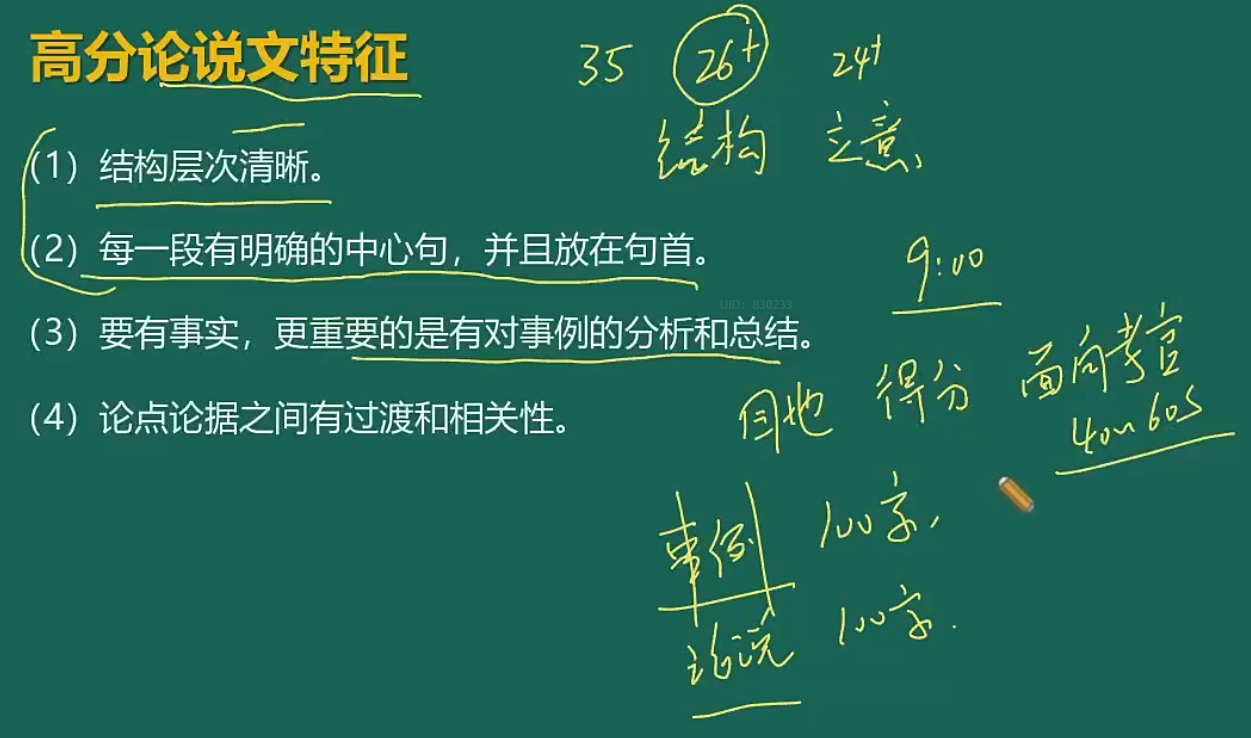 高分论说文特征
35 26+ 24+
结构 立意
（1）结构层次清晰。
（2）每一段有明确的中心句，并且放在句首。
9:00
UID: 830233
（3）要有事实，更重要的是有对事例的分析和总结。
面向考官
得分
40~60s
（4）论点论据之间有过渡和相关性。
事例 100字,
论说 100字.